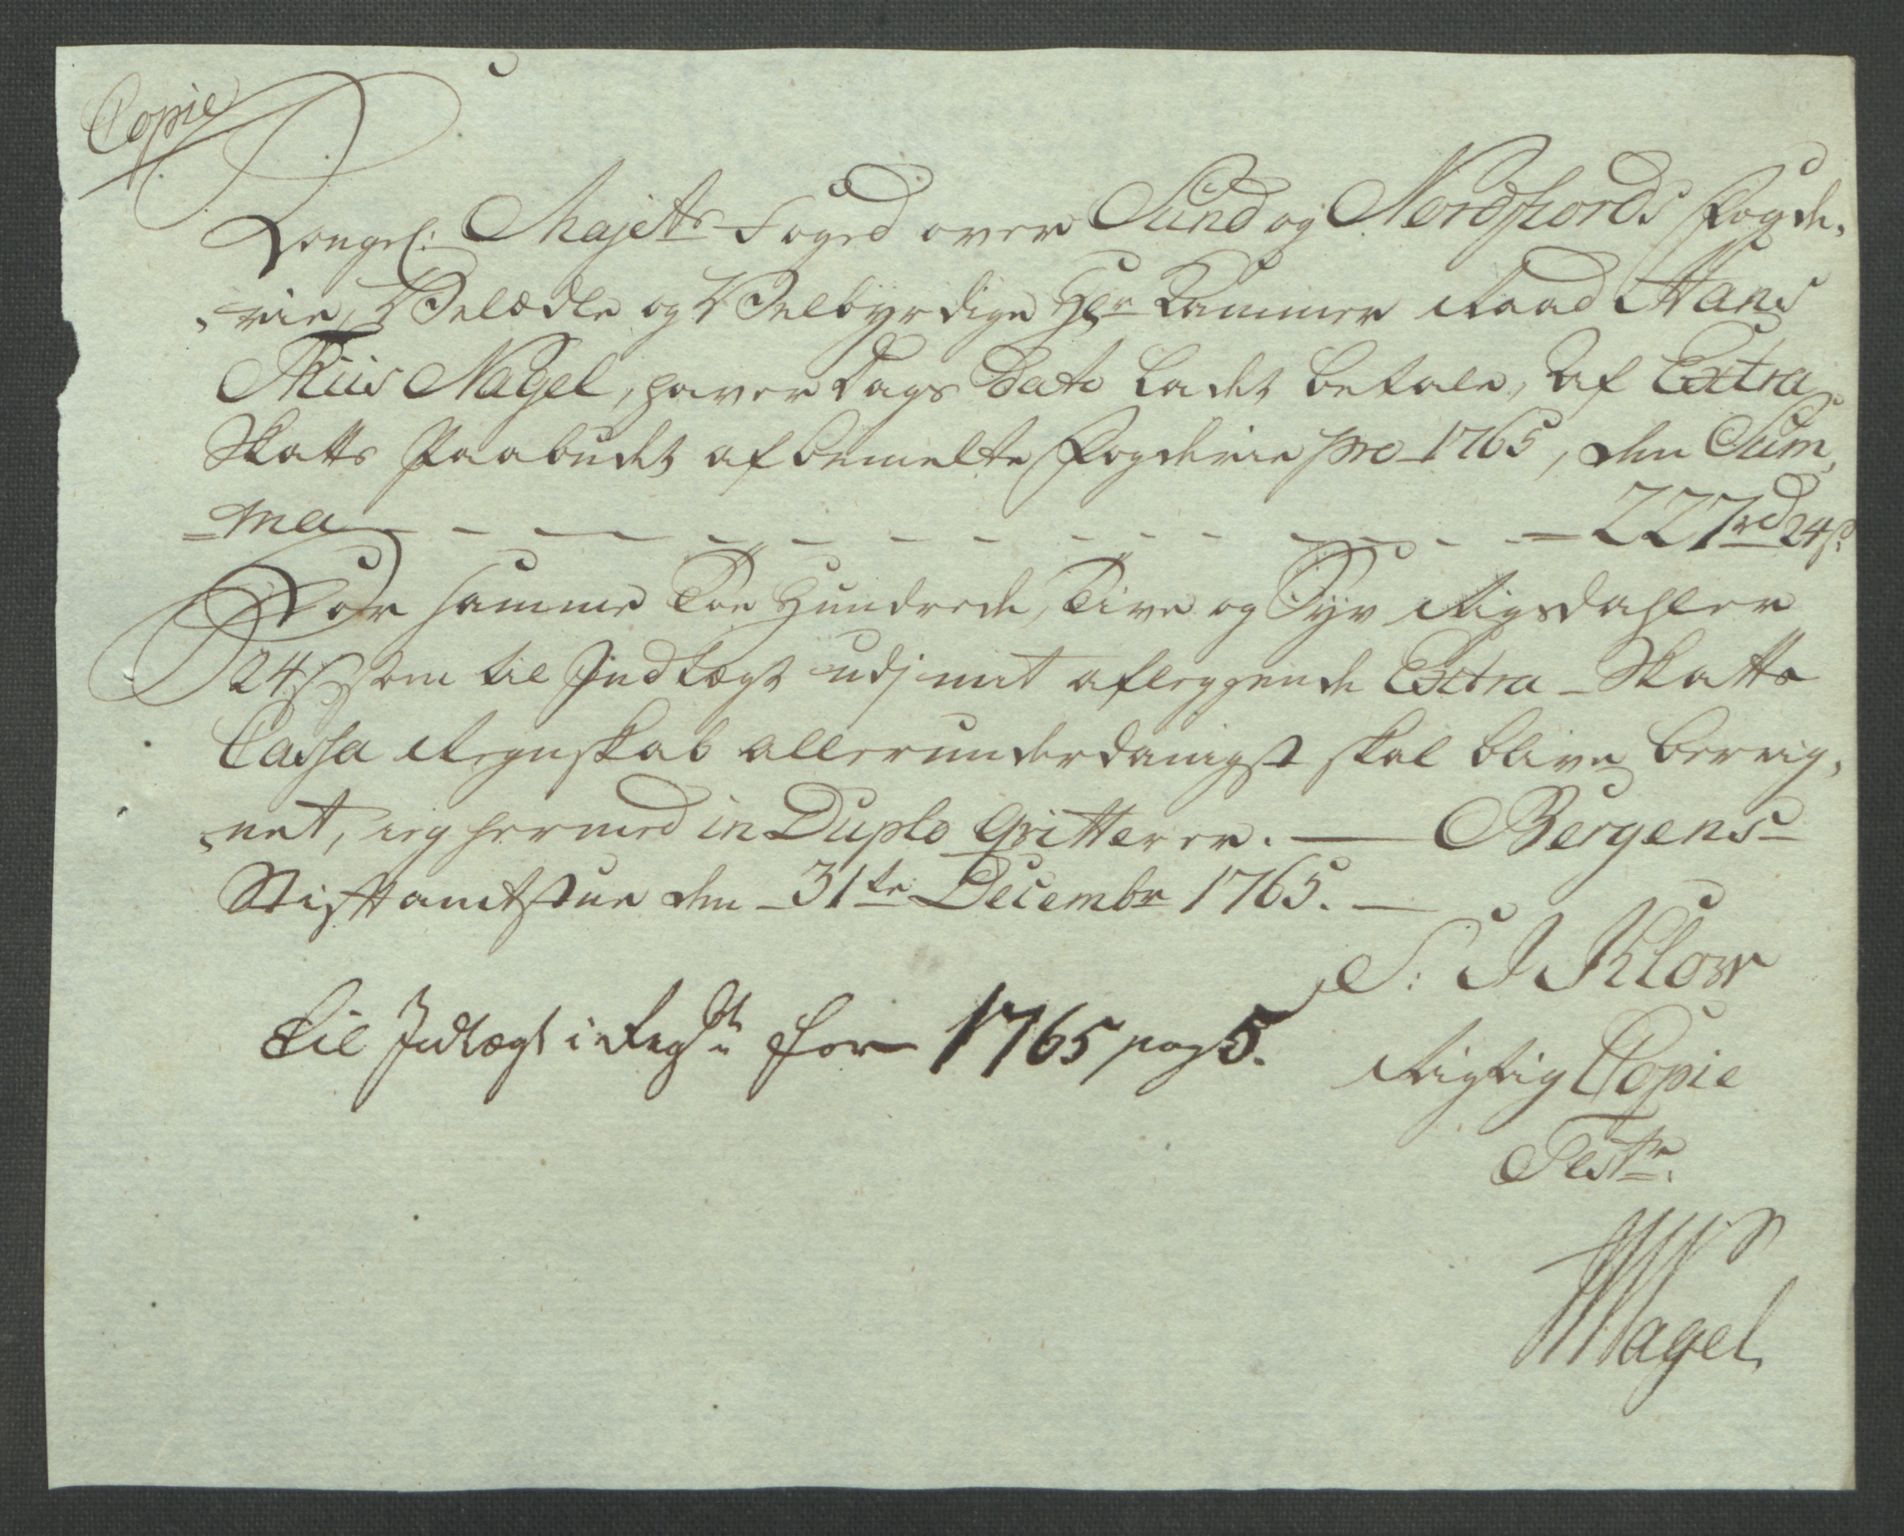 Copie
Kongel: Majets Foged over Sund og Nordfiords Fogde,
,,rie, Velædle og Velbyrdige Hr Kammer Raad Hans
Thiis Nagel, haver Dags Dato ladet betale, Af Extra
Skatts Paabudet af bemelte Fogderie pro 1765, den Sum,
=ma - - - - - - - - - - - - = 227rd 24s.
For samme Toe Hundrede, Tive og Syv Rigsdahler
24s, som til Indtægt udj mit aflæggende Extra-Skatts
Cassa Regnskab allerunderdanigst skal blive bereig,
,,net, ieg hermed in Duplo Qvitterer. — Bergens
Stiftamtstue den 31te Decembr 1765. —
S: J Klow
til Indtægt i Regsk: for 1765 pag 5.
Rigtig Copie
Test:
Nagel